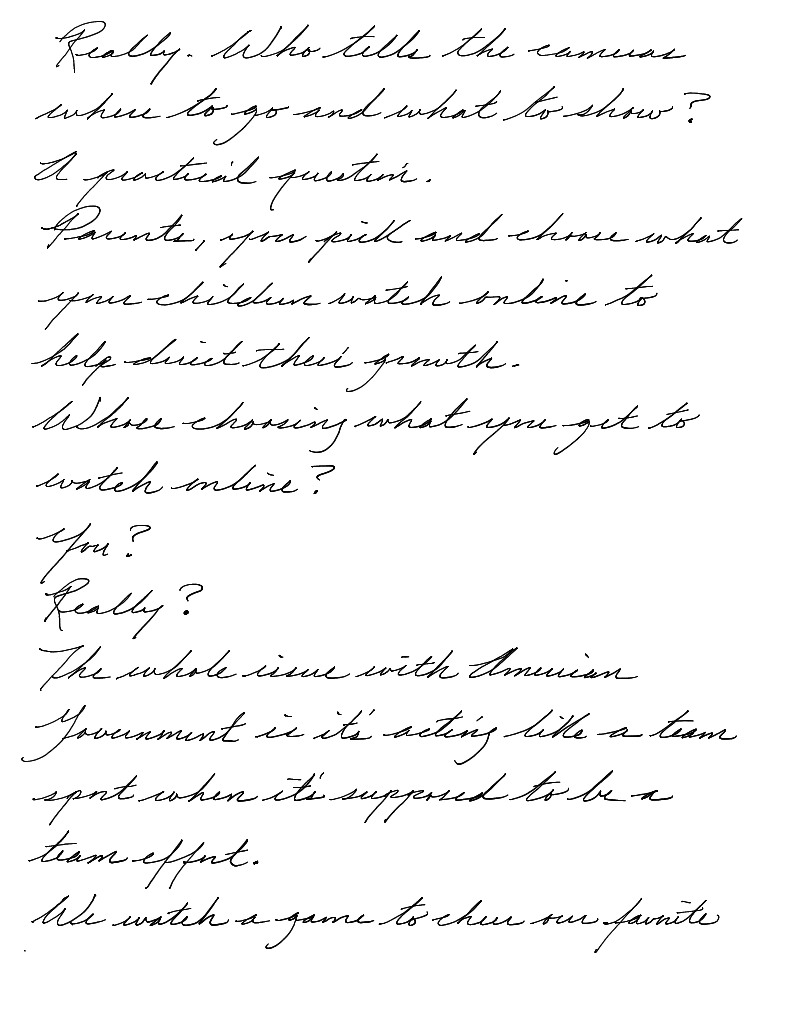 Really. Who tells the cameras
where to go and what to show?
A practical question.
Parents, you pick and choose what
your children watch online to
help direct their growth.
Whose choosing what you get to
watch online?
You?
Really?
The whole issue with American
Government is it's acting like a team
sport when it's supposed to be a
team effort.
We watch a game to cheer our favorite